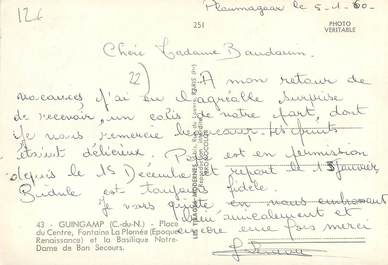 126
251
PHOTO
VERITABLE
Ploumagoar le 5-1-60.
Chère Madame Baudouin.
22)
A mon retour de
vacances j'ai eu l'agréable surprise
de recevoir un colis de votre part, dont
je vous remercie beaucoup. Les fruits
étaient délicieux. est en permission
depuis le 15 Décembre et repart le 15 Janvier
est toujours fidèle.
Je vous quitte en vous embrassant
bien amicalement et
encore une fois merci
43 - GUINGAMP (C.-du-N.) - Place
du Centre, Fontaine La Plomée (Epoque
Renaissance) et la Basilique Notre-
Dame de Bon Secours.